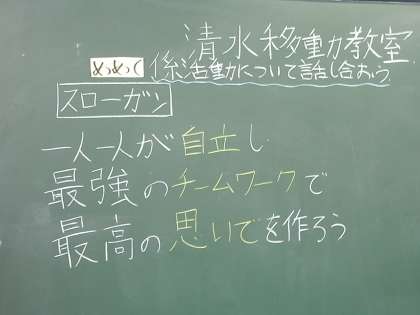 清水移動教室
めあて 係活動について話し合おう
スローガン
一人一人が自立し
最強のチームワークで
最高の思いでを作ろう